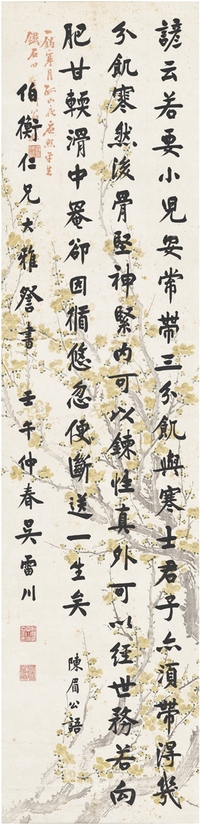 諺云若要小兒安常帶三分飢與寒士君子亦須帶得幾
分飢寒然後骨堅神緊內可以鍊性真外可以經世務若向
肥甘輭滑中罨卻因循悠忽便斷送一生矣
陳眉公語
伯衡仁兄大雅詧書 壬午仲春吳雷川